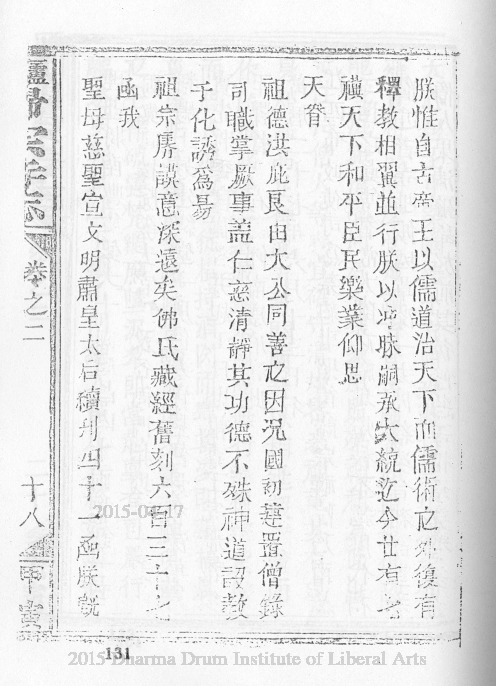 朕惟自古帝王以儒道治天下而儒術之外復有
釋教相翼並行朕以冲昧嗣承大統迄今廿有
禩天下和平臣民樂業仰思
天眷
祖德洪庇良由大公同善之因况國初建置僧錄
司職掌厥事蓋仁慈清靜其功德不殊神道設教
于化誘爲易
祖宗睿謨意深遠矣佛氏藏經舊刻六百三十七
函我
聖母慈聖宣文明肅皇太后續刊四十一函朕既
卷之二
十八
甲寅
2015-04-17
131
2015 Dharma Drum Institute of Liberal Arts